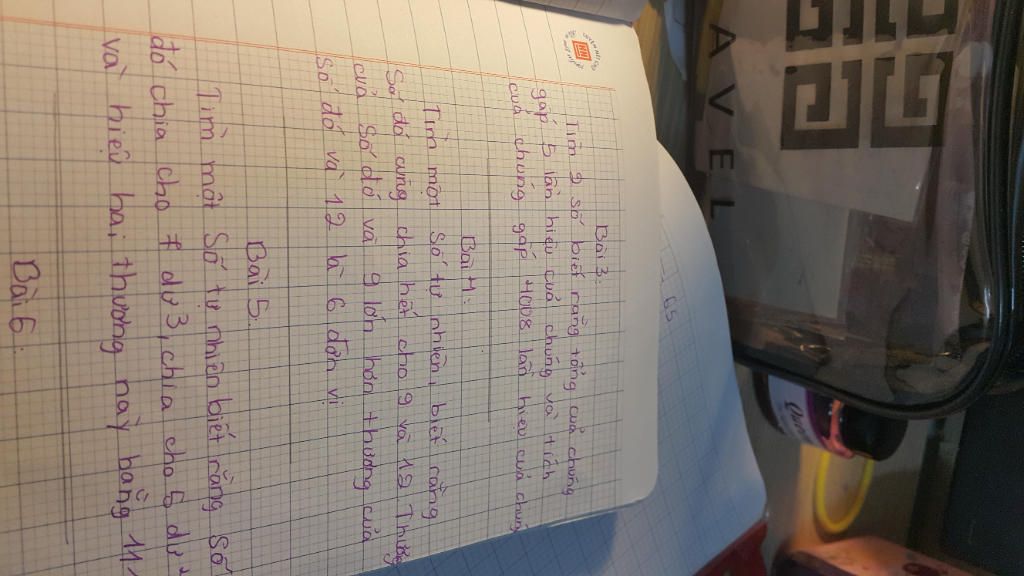 Bài 3:
Tìm 2 số biết rằng tổng của chúng
gấp 5 lần hiệu của chúng và tích
của chúng gấp 4008 lần hiệu của chúng
Bài 4:
Tìm một số tự nhiên, biết rằng
Số đó cũng chia hết cho 9 và 12 Thương
của số đó và 9 lớn hơn thương của
Số đó và 12 là 6 đơn vị
Bài 5:
Tìm một số tự nhiên biết rằng số
đó chia cho 7 dư 3, chia cho 5 dư
và hiệu hai thương này bằng 11
Bài 6:
65
AVEL